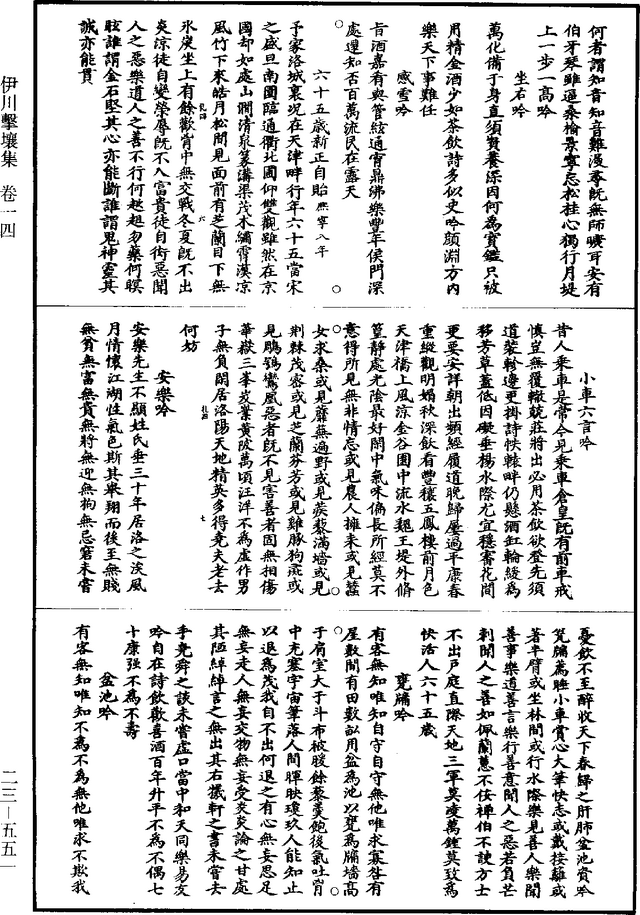 何者謂知音知音難漫尋既無師曠耳安有
伯牙琴雖逼桑榆景寧忘松桂心獨行月堤
上一步一高吟
坐右吟
萬化備于身直須資養深因何為寳鑑只被
用精金酒少如茶飲詩多似史吟顏淵方內
樂天下事難任
感雪吟
旨酒嘉肴與管絃通宵鼎沸樂豐年侯門深
處還知否百萬流民在露天
六十五歲新正自貽熈寧八年
予家洛城裏況在天津畔行年六十五當宋
之盛旦南園臨通衢北圃仰雙觀雖然在京
國却如處山澗清泉篆溝渠茂木繡霄漢凉
風竹下來皓月松間見面前有芝蘭目下無
氷炭坐上有餘歡胷中無交戰冬夏既不出
炎凉徒自變榮辱既不入富貴徒自衒惡聞
人之惡樂道人之善不行何趑趄勿藥何瞑
眩誰謂金石堅其心亦能斷誰謂鬼神靈其
誠亦能貫
小車六言吟
昔人乘車是常今見乘車倉皇既有前車戒
慎豈無覆轍兢莊將出必用茶飲欲登先須
道裝軫邊更掛詩帙轅畔仍懸酒缸輪緩為
移芳草蓋低因礙垂楊水際尤宜穩審花間
更要安詳朝出頻經履道晚歸屢過平康春
重縱觀明媚秋深飲看豐穰五鳳樓前月色
天津橋上風涼金谷園中流水魏王堤外脩
篁靜處光陰最好閑中氣味偏長所經莫不
意得所見無非情忘或見農人擁耒或見蠶
女求桑或見蘼蕪遍野或見蒺藜滿墻或見
荆棘茂密或見芝蘭芬芳或見雞豚狗彘或
見鵰鶚鸞鳳惡者既不見害善者固無相傷
華嶽三峯岌嶪黃陂萬頃汪洋不為虛作男
子無負閑居洛陽天地精英多得堯夫老去
何妨
安樂吟
安樂先生不顯姓氏垂三十年居洛之涘風
月情懷江湖性氣色斯其舉翔而後至無賤
無貧無富無貴無將無迎無拘無忌窘未嘗
憂飲不至醉收天下春歸之肝肺盆池資吟
甕牖薦睡小車賞心大筆快志或戴接籬或
著半臂或坐林間或行水際樂見善人樂聞
善事樂道善言樂行善意聞人之惡若負芒
刺聞人之善如佩蘭蕙不佞禪伯不諛方士
不出戶庭直際天地三軍莫凌萬鍾莫致為
快活人六十五歲
甕牖吟
有客無知唯知自守自守無他唯求寡咎有
屋數間有田數畝用盆為池以甕為牖墻高
于肩室大于斗布被暖餘藜羹飽後氣吐胷
中充塞宇宙筆落人間暉映瓊玖人能知止
以退為茂我自不出何退之有心無妄思足
無妄走人無妄交物無妄受炎炎論之甘處
其陋綽綽言之無出其右羲軒之書未嘗去
手堯舜之談未嘗虛口當中和天同樂易友
吟自在詩飲歡喜酒百年升平不為不偶七
十康强不為不壽
盆池吟
有客無知唯知不為不為無他唯求不欺我
伊川擊壤集 卷一四
二三—五五一